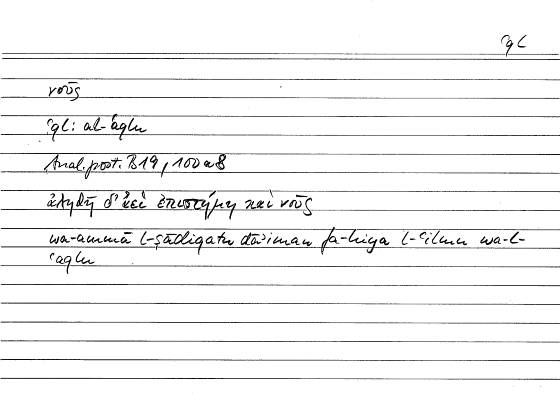 ʿql
νοῦς
ʿql: al-ʿaqlu
Anal. post. B19, 100 a 8
ἀληθῆ δ' ἀεὶ ἐπιστήμη καὶ νοῦς
wa-ammā l-ṣādiqatu dāʾiman fa-hiya l-ʿilmu wa-l-
ʿaqlu